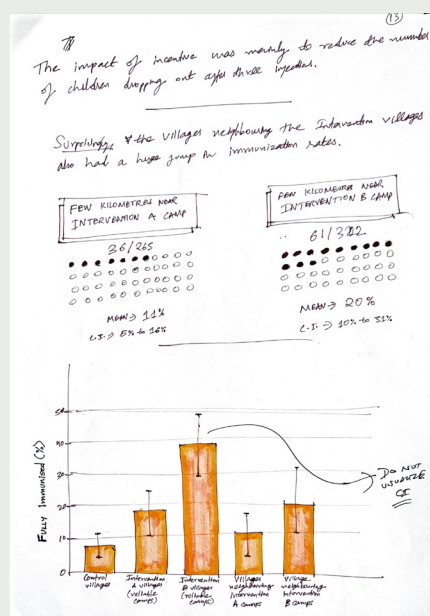 (13)
The impact of incentive was mainly to reduce the number
of children dropping out after three injections.
Surprisingly, the villages neighbouring the Intervention villages
also had a huge jump in immunization rates.
FEW KILOMETRES NEAR
INTERVENTION A CAMP
36/265
MEAN → 11%
C.I. → 5% to 16%
FEW KILOMETRES NEAR
INTERVENTION B CAMP
61/322
MEAN → 20%
C.I. → 10% to 31%
FULLY IMMUNISED (%)
50
40
30
20
10
0
DO NOT
VISUALIZE
CI
Control
villages
Intervention
A villages
(reliable
camps)
Intervention
B villages
(reliable
camps)
Villages
neighbouring
Intervention
A camps
Village
neighbouring
Intervention
B camps